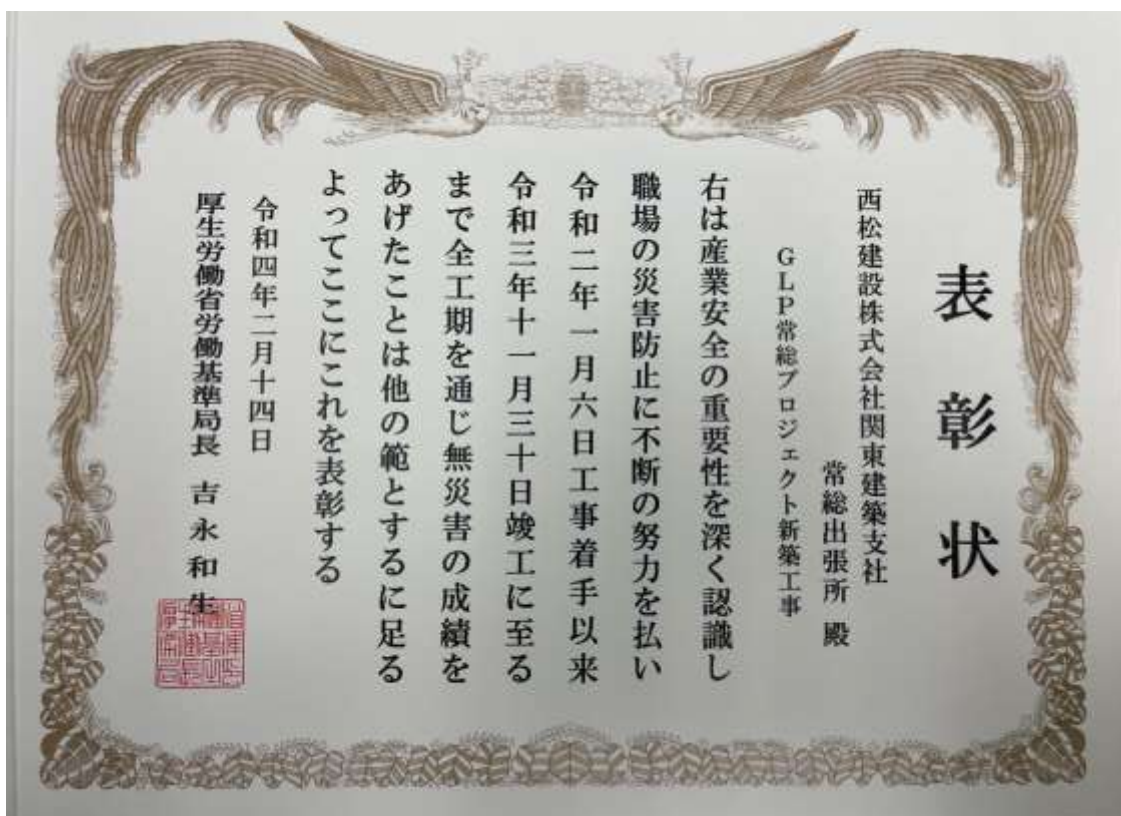 表彰状
西松建設株式会社関東建築支社
常総出張所 殿
GLP常総プロジェクト新築工事
右は産業安全の重要性を深く認識し
職場の災害防止に不断の努力を払い
令和二年一月六日工事着手以来
令和三年十一月三十日竣工に至る
まで全工期を通じ無災害の成績を
あげたことは他の範とするに足る
よってここにこれを表彰する
令和四年二月十四日
厚生労働省労働基準局長 吉永和生